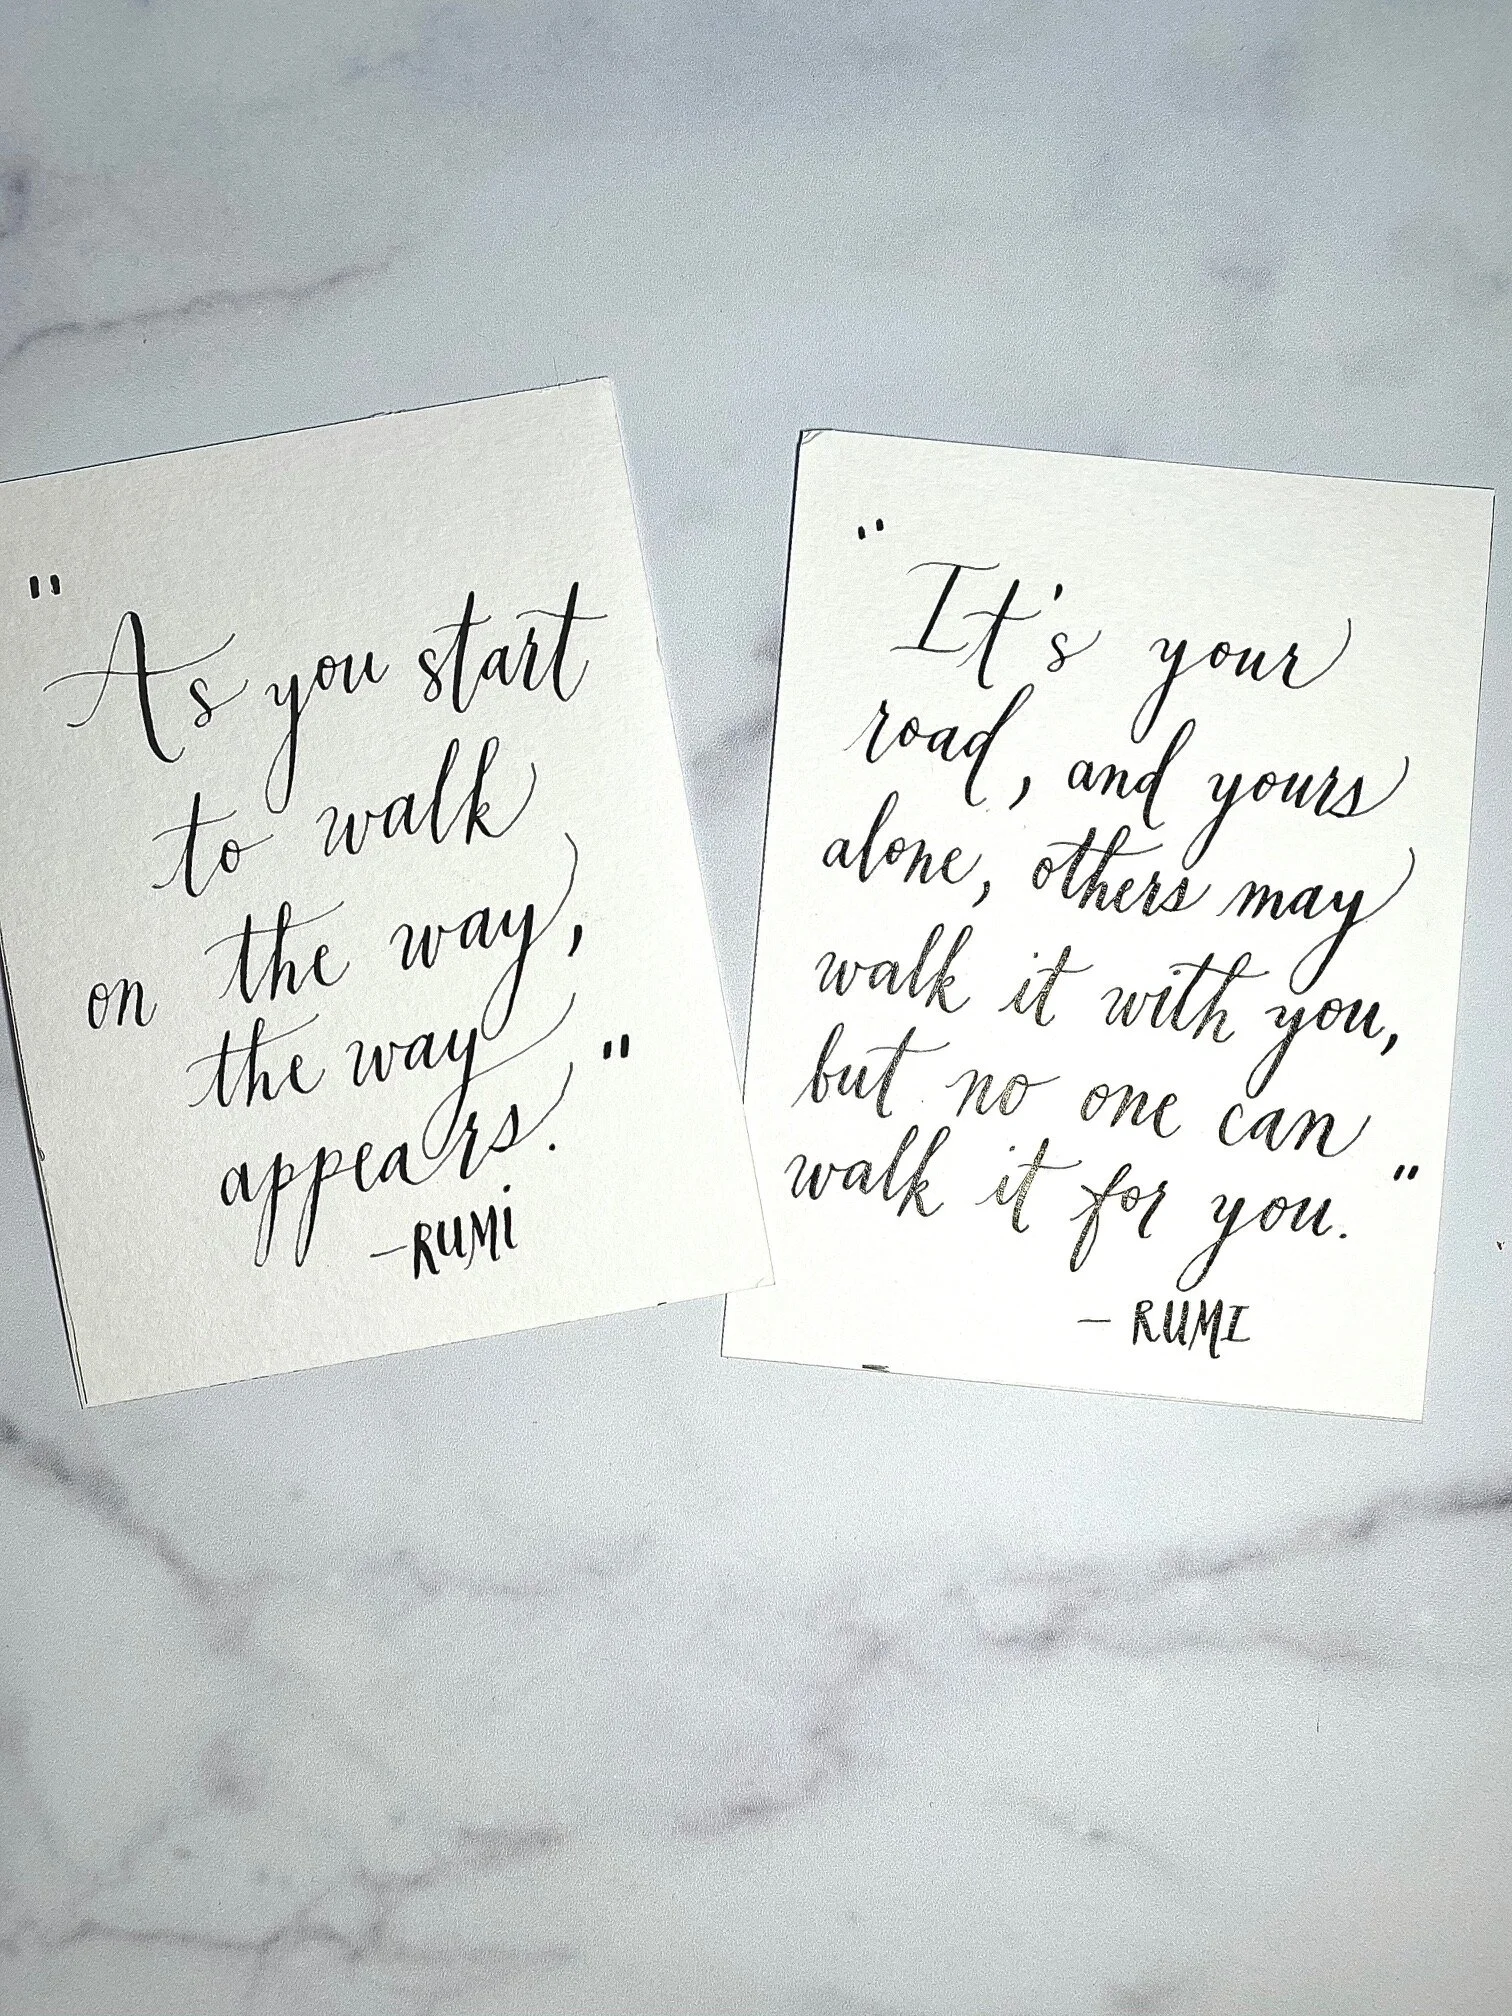 "
As you start
to walk
on the way,
the way
appears."
-RUMI
"
It's your
road, and yours
alone, others may
walk it with you,
but no one can
walk it for you."
- RUMI